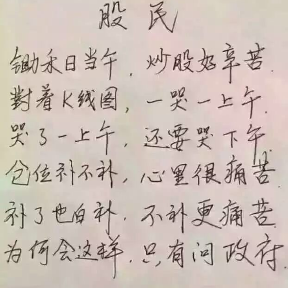 股民
锄禾日当午，炒股好辛苦．
對着K线图，一哭一上午．
哭了一上午，还要哭下午．
仓位补不补，心里很痛苦．
补了也白补，不补更痛苦
为何会这样，只有问政府．